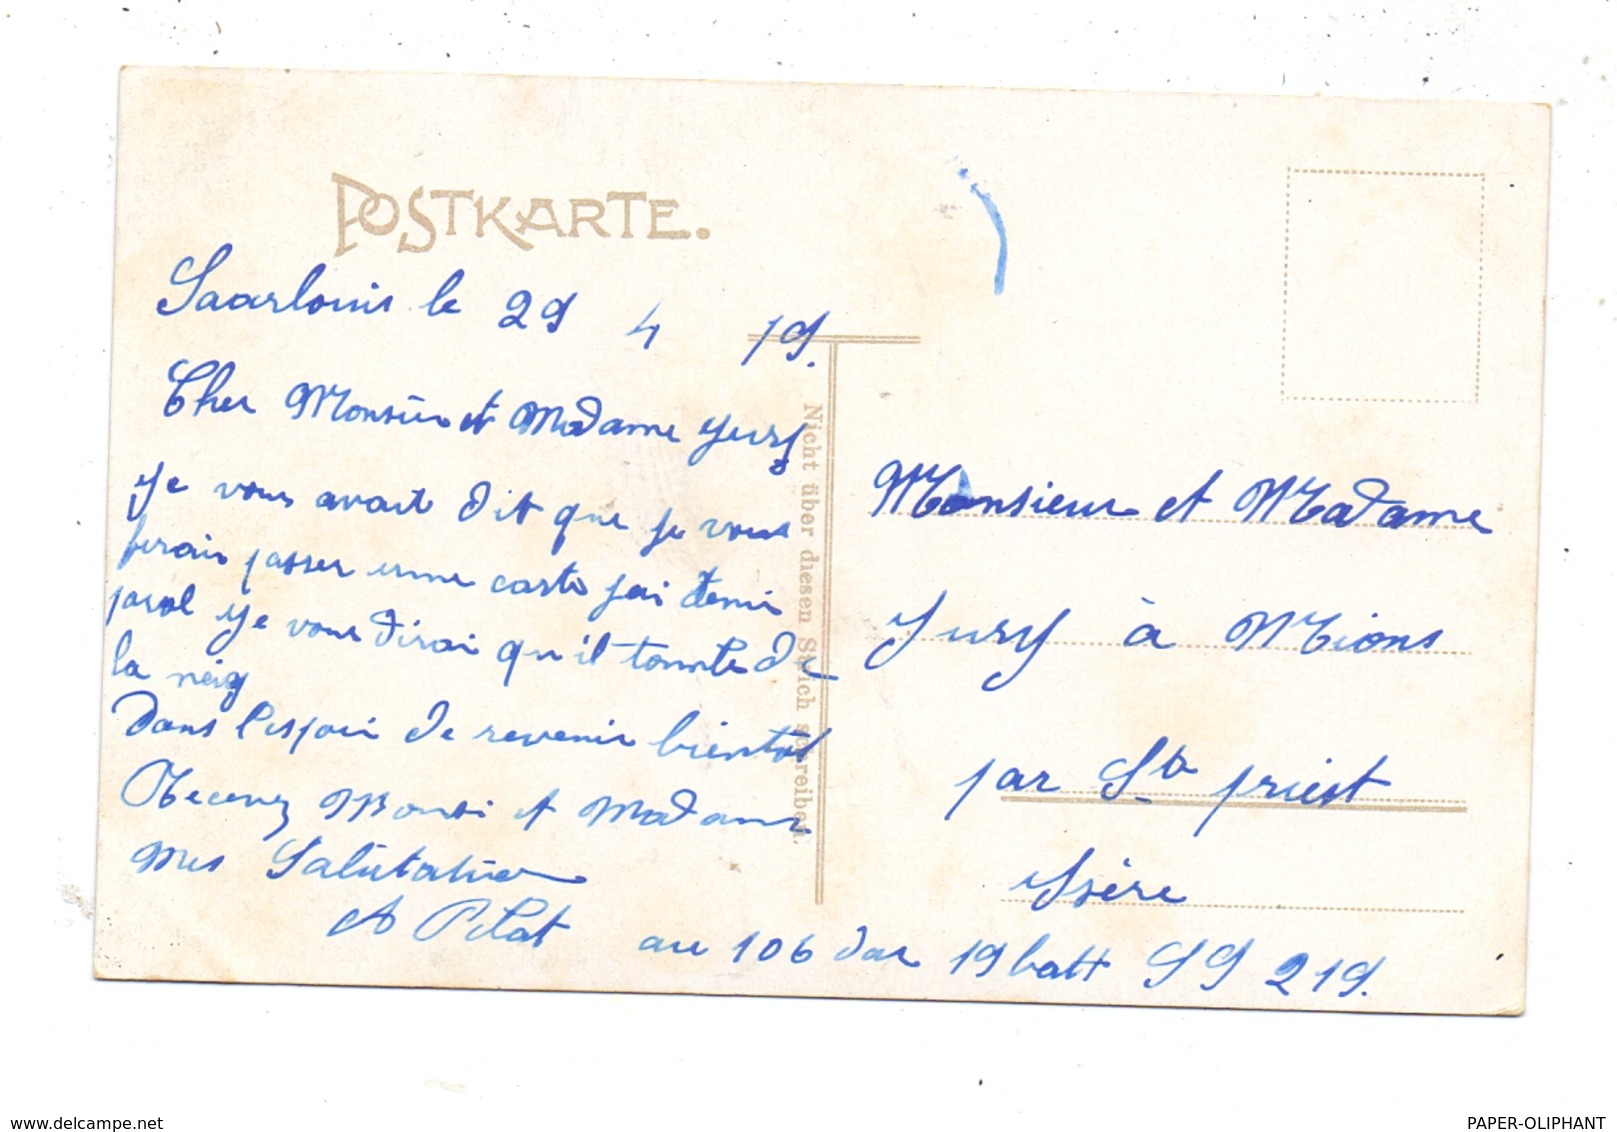 POSTKARTE.
Saarlouis le 29 4 19.
Cher Monsieur et Madame
Je vous avait dit que je vous
ferais passer une carte j'ai tenu
parol Je vous dirai qu'il tombe de
la neig
Dans l'espoir de revenir bientot
Recevez Monsi et Madame
mes Salutation
A Pilat
au 106 dar 19 batt SP 219.
Nicht über diesen Strich schreiben.
Monsieur et Madame
à Mions
par St priest
Isère
www.delcampe.net
PAPER-OLIPHANT